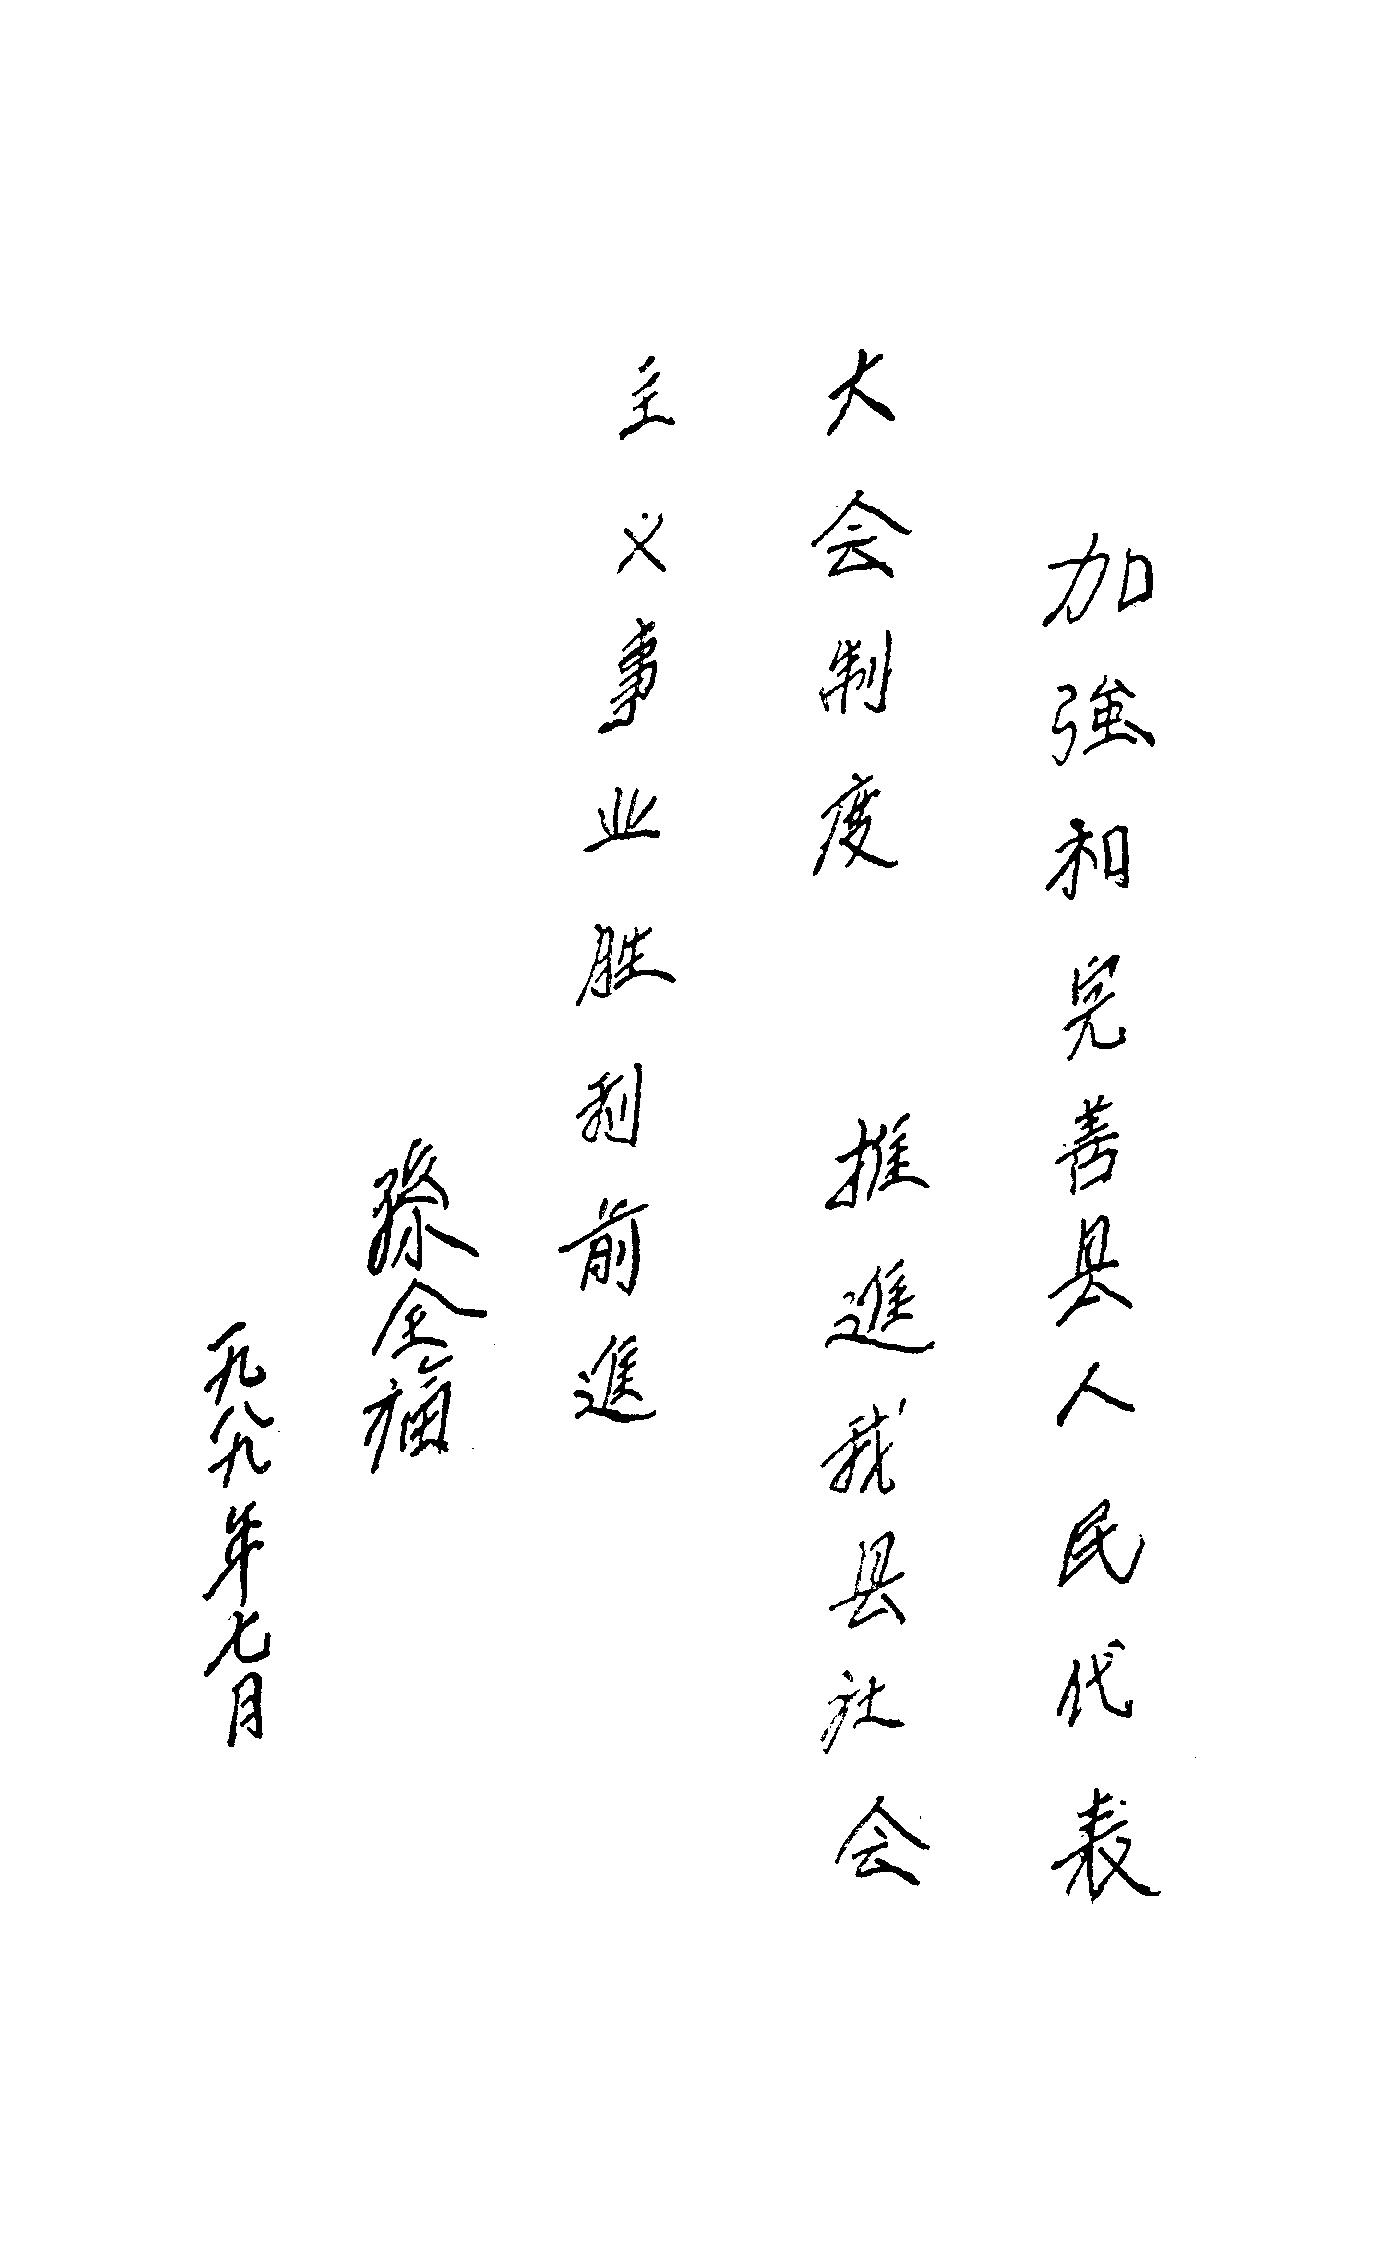 加強和完善县人民代表
大会制度 推進我县社会
主义事业胜利前進
全福
一九八九年七月